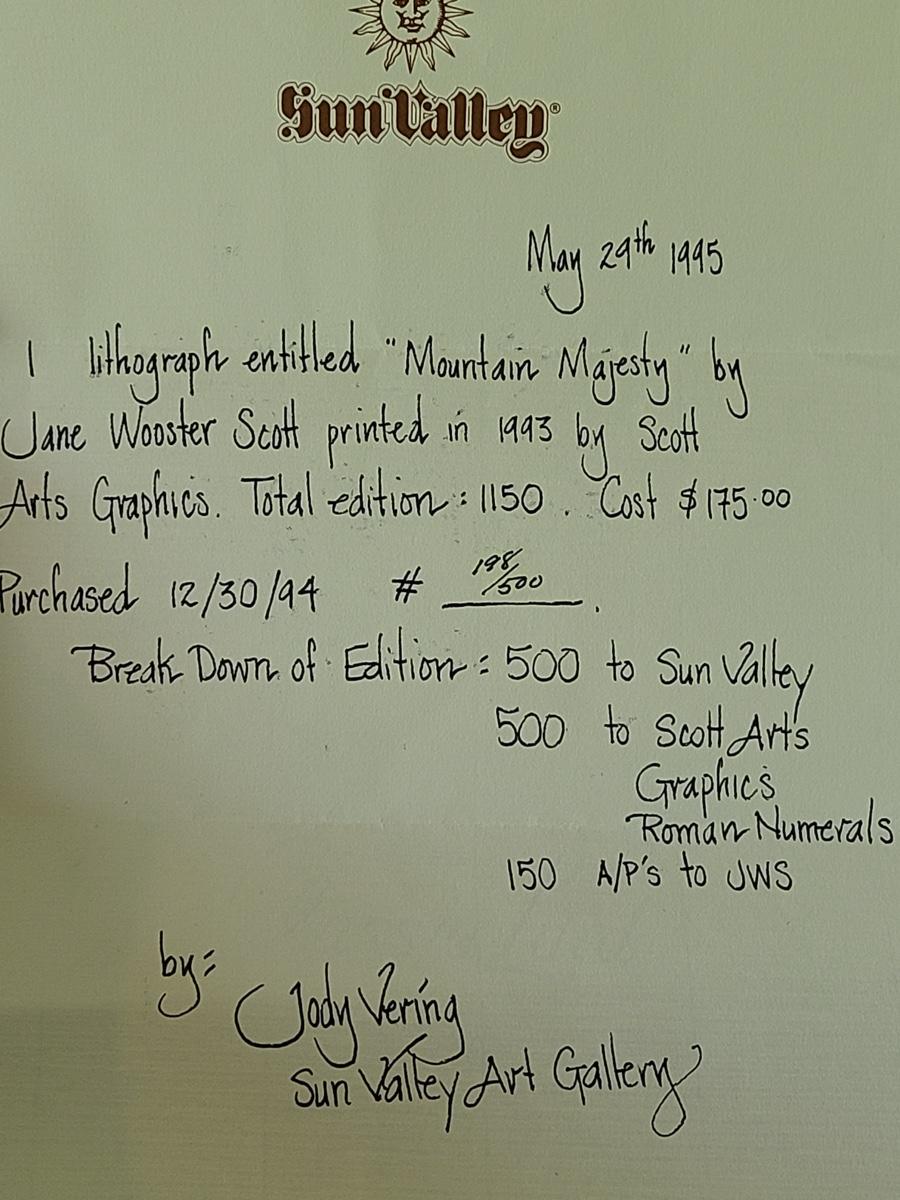 Sun Valley®
May 29th 1995
1 lithograph entitled "Mountain Majesty" by
Jane Wooster Scott printed in 1993 by Scott
Arts Graphics. Total edition: 1150. Cost $175.00
Purchased 12/30/94 # 198/500.
Break Down of Edition: 500 to Sun Valley
500 to Scott Arts
Graphics
Roman Numerals
150 A/P's to JWS
by:
Jody Vering
Sun Valley Art Gallery